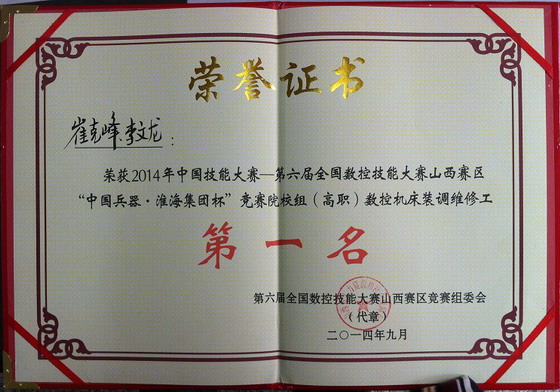 荣誉证书
崔克峰、李文龙：
荣获2014年中国技能大赛—第六届全国数控技能大赛山西赛区
“中国兵器·淮海集团杯”竞赛院校组（高职）数控机床装调维修工
第一名
第六届全国数控技能大赛山西赛区竞赛组委会
（代章）
二〇一四年九月